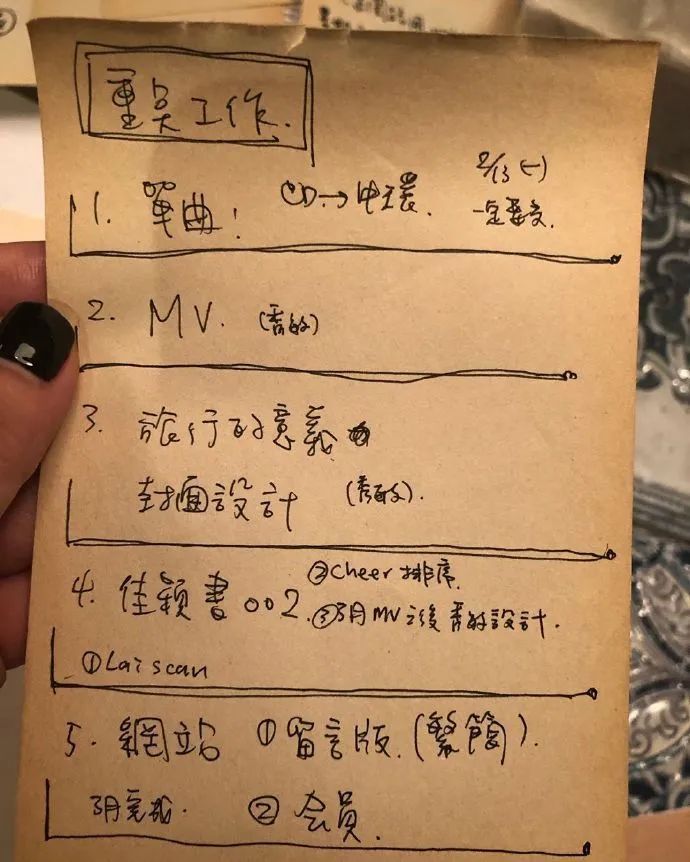 重吳工作.
1. 單曲! CD→中環. 2/13 (一)
一定要交.
2. MV. (秀的)
3. 旅行的意義
封面設計 (秀的).
4. 佳穎書002. ②Cheer 排序.
③3月MV之後 秀的設計.
①Lai scan
5. 網站 ①留言版.(繁簡).
3月完成. ②会員.